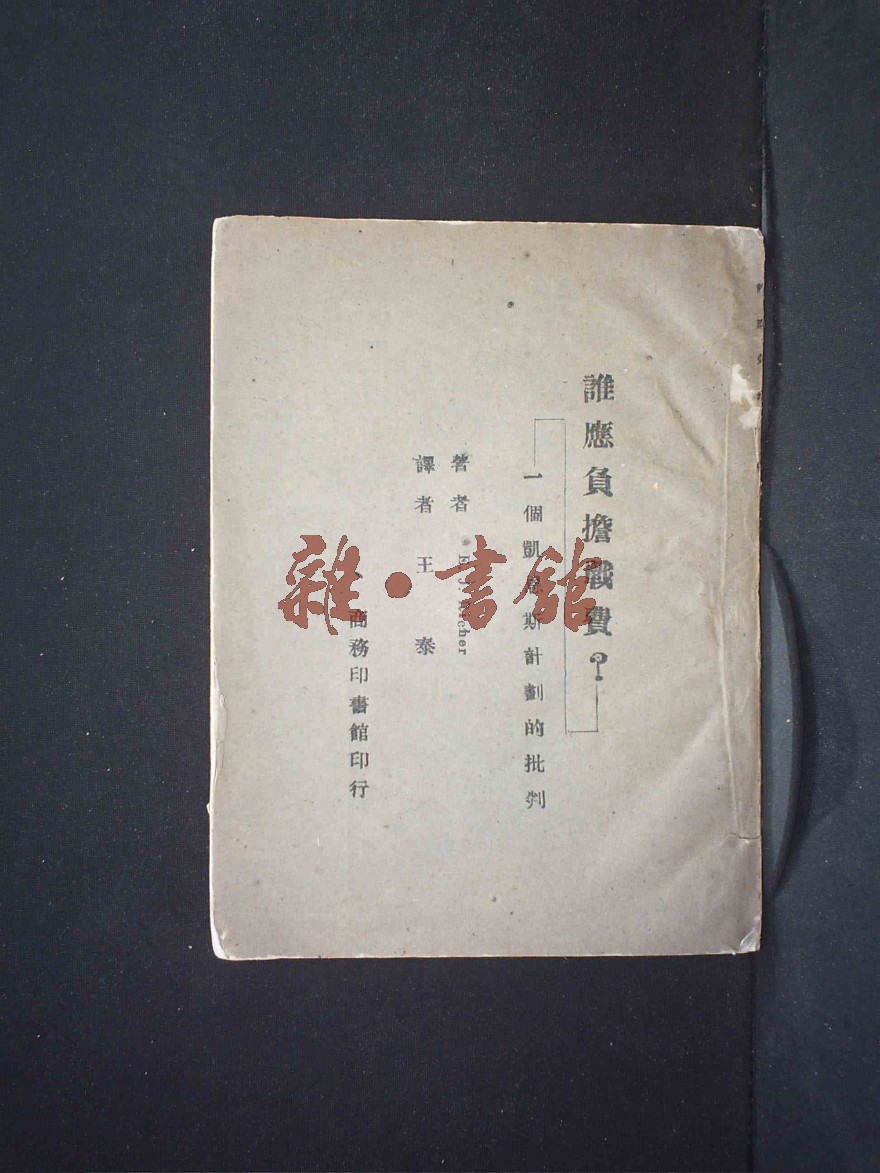 誰應負擔戰費?
一個凱恩斯計劃的批判
著者
譯者 王 泰
商務印書館印行
雜·書館